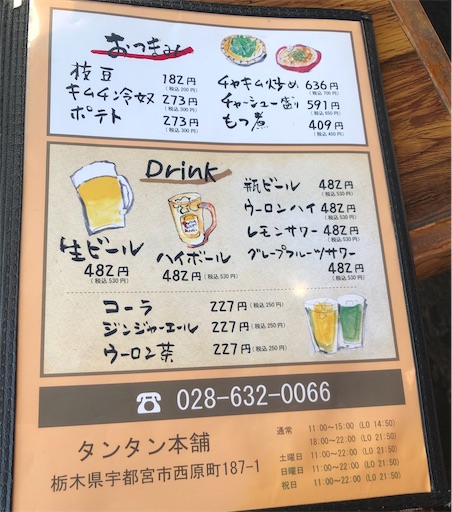 おつまみ
枝豆 182円(税込 200円)
キムチ冷奴 273円(税込 300円)
ポテト 273円(税込 300円)
チャキム炒め 636円(税込 700円)
チャーシュー盛り 591円(税込 650円)
もつ煮 409円(税込 450円)
Drink
生ビール
482円(税込 530円)
ハイボール
482円(税込 530円)
瓶ビール 482円(税込 530円)
ウーロンハイ 482円(税込 530円)
レモンサワー 482円(税込 530円)
グレープフルーツサワー
482円(税込 530円)
コーラ 227円(税込 250円)
ジンジャーエール 227円(税込 250円)
ウーロン茶 227円(税込 250円)
☎ 028-632-0066
タンタン本舗
栃木県宇都宮市西原町187-1
通常 11:00～15:00 (LO 14:50)
18:00～22:00 (LO 21:50)
土曜日 11:00～22:00 (LO 21:50)
日曜日 11:00～22:00 (LO 21:50)
祝日 11:00～22:00 (LO 21:50)